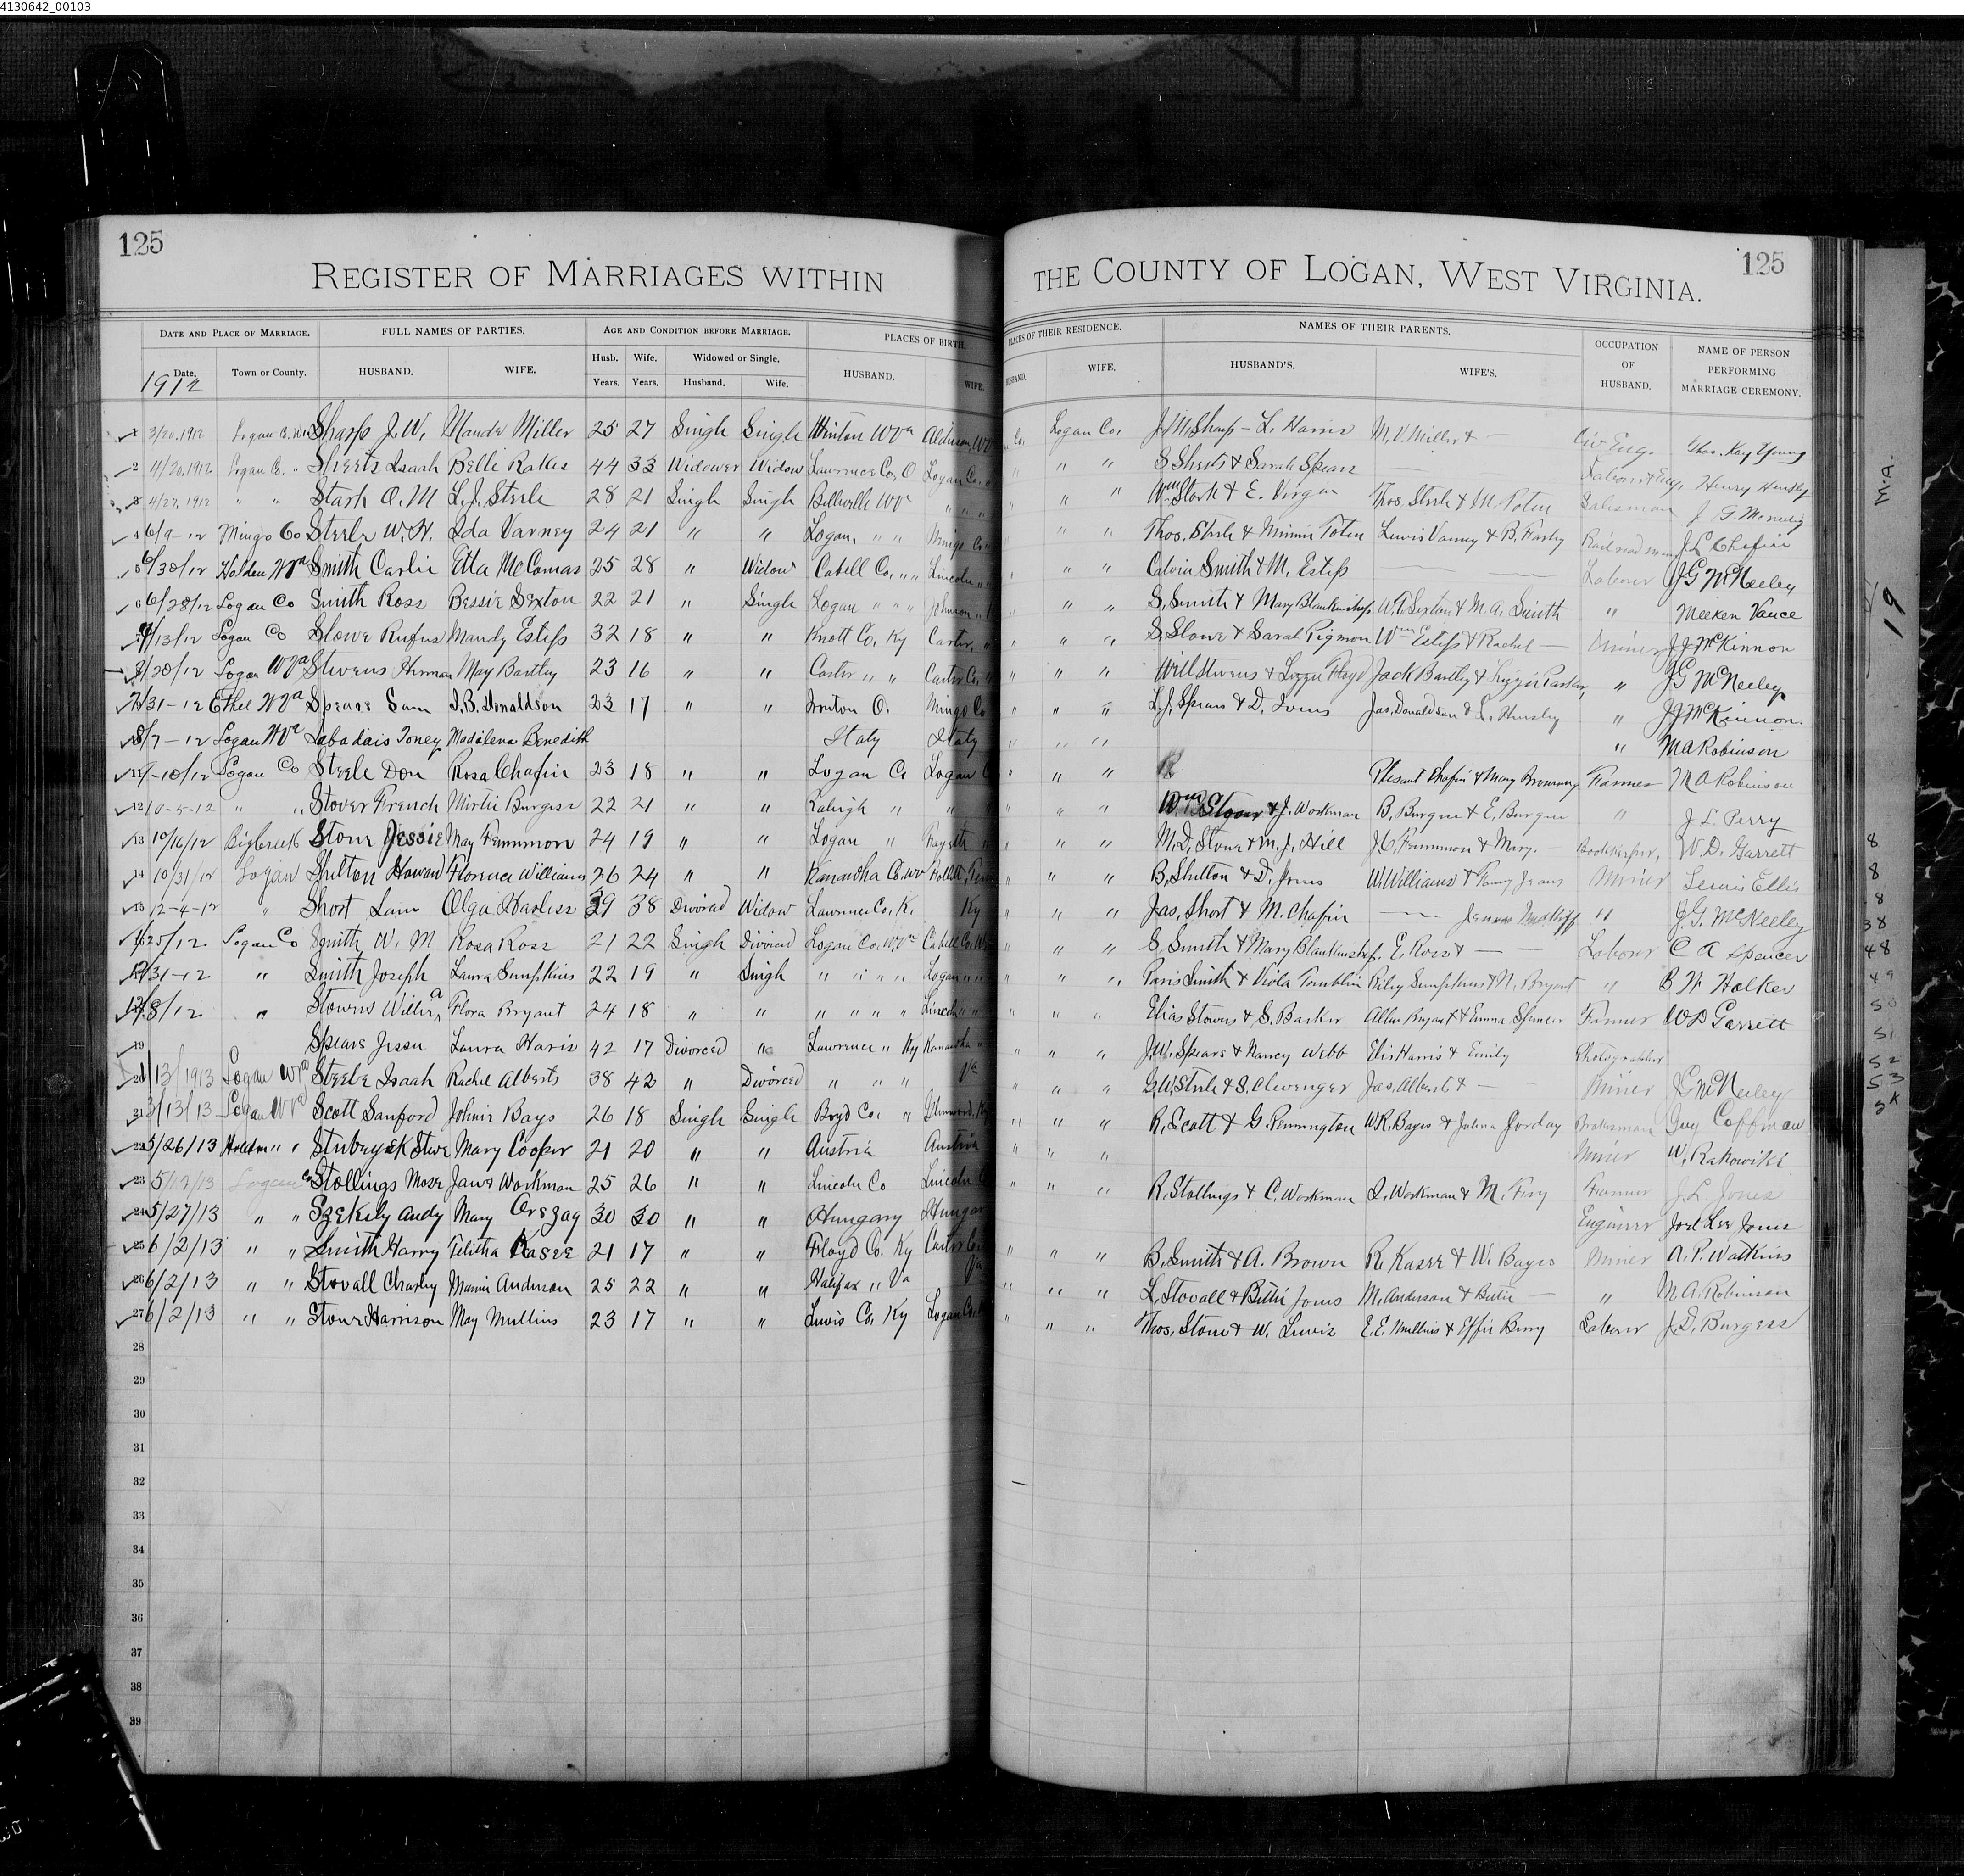 4130642_00103
125
REGISTER OF MARRIAGES WITHIN
THE COUNTY OF LOGAN, WEST VIRGINIA.
125
DATE AND PLACE OF MARRIAGE. FULL NAMES OF PARTIES. AGE AND CONDITION BEFORE MARRIAGE. PLACES OF BIRTH. PLACES OF THEIR RESIDENCE. NAMES OF THEIR PARENTS. OCCUPATION OF HUSBAND. NAME OF PERSON PERFORMING MARRIAGE CEREMONY.
Date. Town or County. HUSBAND. WIFE. Husb. Wife. Widowed or Single. HUSBAND. WIFE. HUSBAND. WIFE. HUSBAND'S. WIFE'S.
1912 Years. Years. Husband. Wife.
1 3/20.1912 Logan Sharp J.W. Maude Miller 25 27 Single Single Hinton WVa Logan Co. J.M. Sharp - L. Harris M.V. Miller & — Civ Eng. Thos. Kay Young
2 4/20.1912 Logan Sheets Isaah Belle Rakes 44 33 Widower Widow Lawrence Co, O Logan Co. " " S Sheets & Sarah Spears — Henry Hensley
3 4/27, 1912 " " Stark O. M L. J. Steele 28 21 Single Single Belleville WV " " Wm Stark & E. Virgin Thos Steele & M. Toten Salesman
4 6/9-12 Mingo Co Steele W. H. Ida Varney 24 21 " " Logan, " " Mingo Co " " Thos. Steele & Minnie Toten Lewis Varney & B. Farley Railroad man J L Chafin
5 6/30/12 Holden WVa Smith Carlie Etta McComas 25 28 " Widow Cabell Co, " " Lincoln " " Calvin Smith & M. Estep — Laborer J G McNeeley
6 6/28/12 Logan Co Smith Ross Bessie Sexton 22 21 " Single Logan " " " Johnson " " S. Smith & Mary Blankenship W. T. Sexton & M. A. Smith " Meeken Vance
7/13/12 Logan Co Slowe Rufus Mandy Estep 32 18 " " Knott Co, Ky Carter, " " " S. Slowe & Sarah Pigmon Wm Estep & Rachel — Miner J J McKinnon
8/20/12 Logan WVa Stevens Herman May Bartley 23 16 " " Carter " " Carter Co. " " Will Stevens & Lizzie Floyd Jack Bartley & Lizzie " J G McNeeley
7/31-12 Ethel WVa Spears Sam I. B. Donaldson 23 17 " " Ironton O. Mingo Co " " " L. J. Spears & D. Ivens Jas. Donaldson & L. Hensley " J J McKinnon.
8/7-12 Logan WVa Labadais Toney Madalena Benedith Italy Italy " " " " M A Robinson
11 10/12 Logan Co Steele Don Rosa Chafin 23 18 " " Logan Co Logan " " " R Plesant Chafin & Mary Browning Farmer M A Robinson
12 10-5-12 " " Stover French Mirtie Burgess 22 21 " " Raleigh " " " " " Wm Stover & J. Workman B. Burgess & E. Burgess " J L Perry
13 10/16/12 Stone Jessie May Femmmon 24 19 " " Logan " Fayette " " " M. D. Stone & M. J. Hill & Mary. — Bookkeeper, W. D. Garrett
14 10/31/12 Logan Shelton Howard Florence Williams 26 24 " " Kanawha Co. WV " " " B. Shelton & D. Jones W. Williams & Fanny Miner Lewis Ellis
15 12-4-12 " Short Lam Olga Harless 39 38 Divorced Widow Lawrence Co, K. Ky " " " Jas. Short & M. Chafin — " J. G. McNeeley
25/12 Logan Co Smith W. M Rosa Ross 21 22 Single Divorced Logan Co. WVa Cabell Co. W " " " S. Smith & Mary Blankenship. E. Ross & — Laborer C A Spencer
31-12 " Smith Joseph Laura Simpkins 22 19 " Single " " " " Logan " " " " Paris Smith & Viola Tomblin Riley Simpkins & N. Bryant " B W Holker
12/8/12 " Stowers Willia Flora Bryant 24 18 " " " " " " Lincoln " " " " Elias Stowers & S. Barker Allen Bryant & Emma Spencer Farmer W D Garrett
19 Spears Jesse Laura Haris 42 17 Divorced " Lawrence " Ky Kanawha " " " J. W. Spears & Nancy Webb Elis Harris & Emily Photographer
20 1/13/1913 Logan WVa Steele Isaah Rachel Alberts 38 42 " Divorced " " " Va " " " G. W. Steele & S. Clevenger Jas. Alberts & — Miner J G McNeeley
21 3/13/13 Logan WVa Scott Sanford Johnie Bays 26 18 Single Single Boyd Co, " " " " R. Scott & G. Pennington W R. Bays & Brakesman Guy Coffman
22 5/26/13 Holden " " Stubeyek Steve Mary Cooper 21 20 " " Austria Austria " " " Miner W. Rakowiki
23 5/ /13 Logan Co Stollings Mose Jane Workman 25 26 " " Lincoln Co Lincoln " " " R. Stollings & C. Workman & M. Fry Farmer J. L. Jones
24 5/27/13 " " Szekely Andy Mary Orszag 30 30 " " Hungary Hungar Engineer Joel Lee Jones
25 6/2/13 " " Smith Harry Telitha Kasee 21 17 " " Floyd Co. Ky Carter Co " " " B. Smith & A. Brown R. Kasee & W. Bayes Miner A. P. Watkins
26 6/2/13 " " Stovall Charley Mamie Anderson 25 22 " " Halifax " Va Va " " " L. Stovall & Bettie Jones M. Anderson & Bettie — " M. A. Robinson
27 6/2/13 " " Stone Harrison May Mullins 23 17 " " Lewis Co, Ky Logan Co. " " " Thos. Stone & W. Lewis E. E. Mullins & Effie Berry Laborer J. D. Burgess
28
29
30
31
32
33
34
35
36
37
38
39
M.A.
19
8
8
8
38
48
49
50
51
52
53